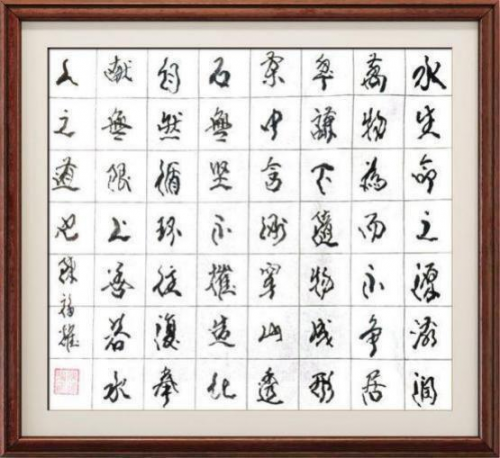 水生命之源滋润
萬物為而不争居
卑謙下隨物成形
柔中含剛穿山透
石無坚不摧造化
自然循环往復奉
献無限上善若水
人之道也
陳福